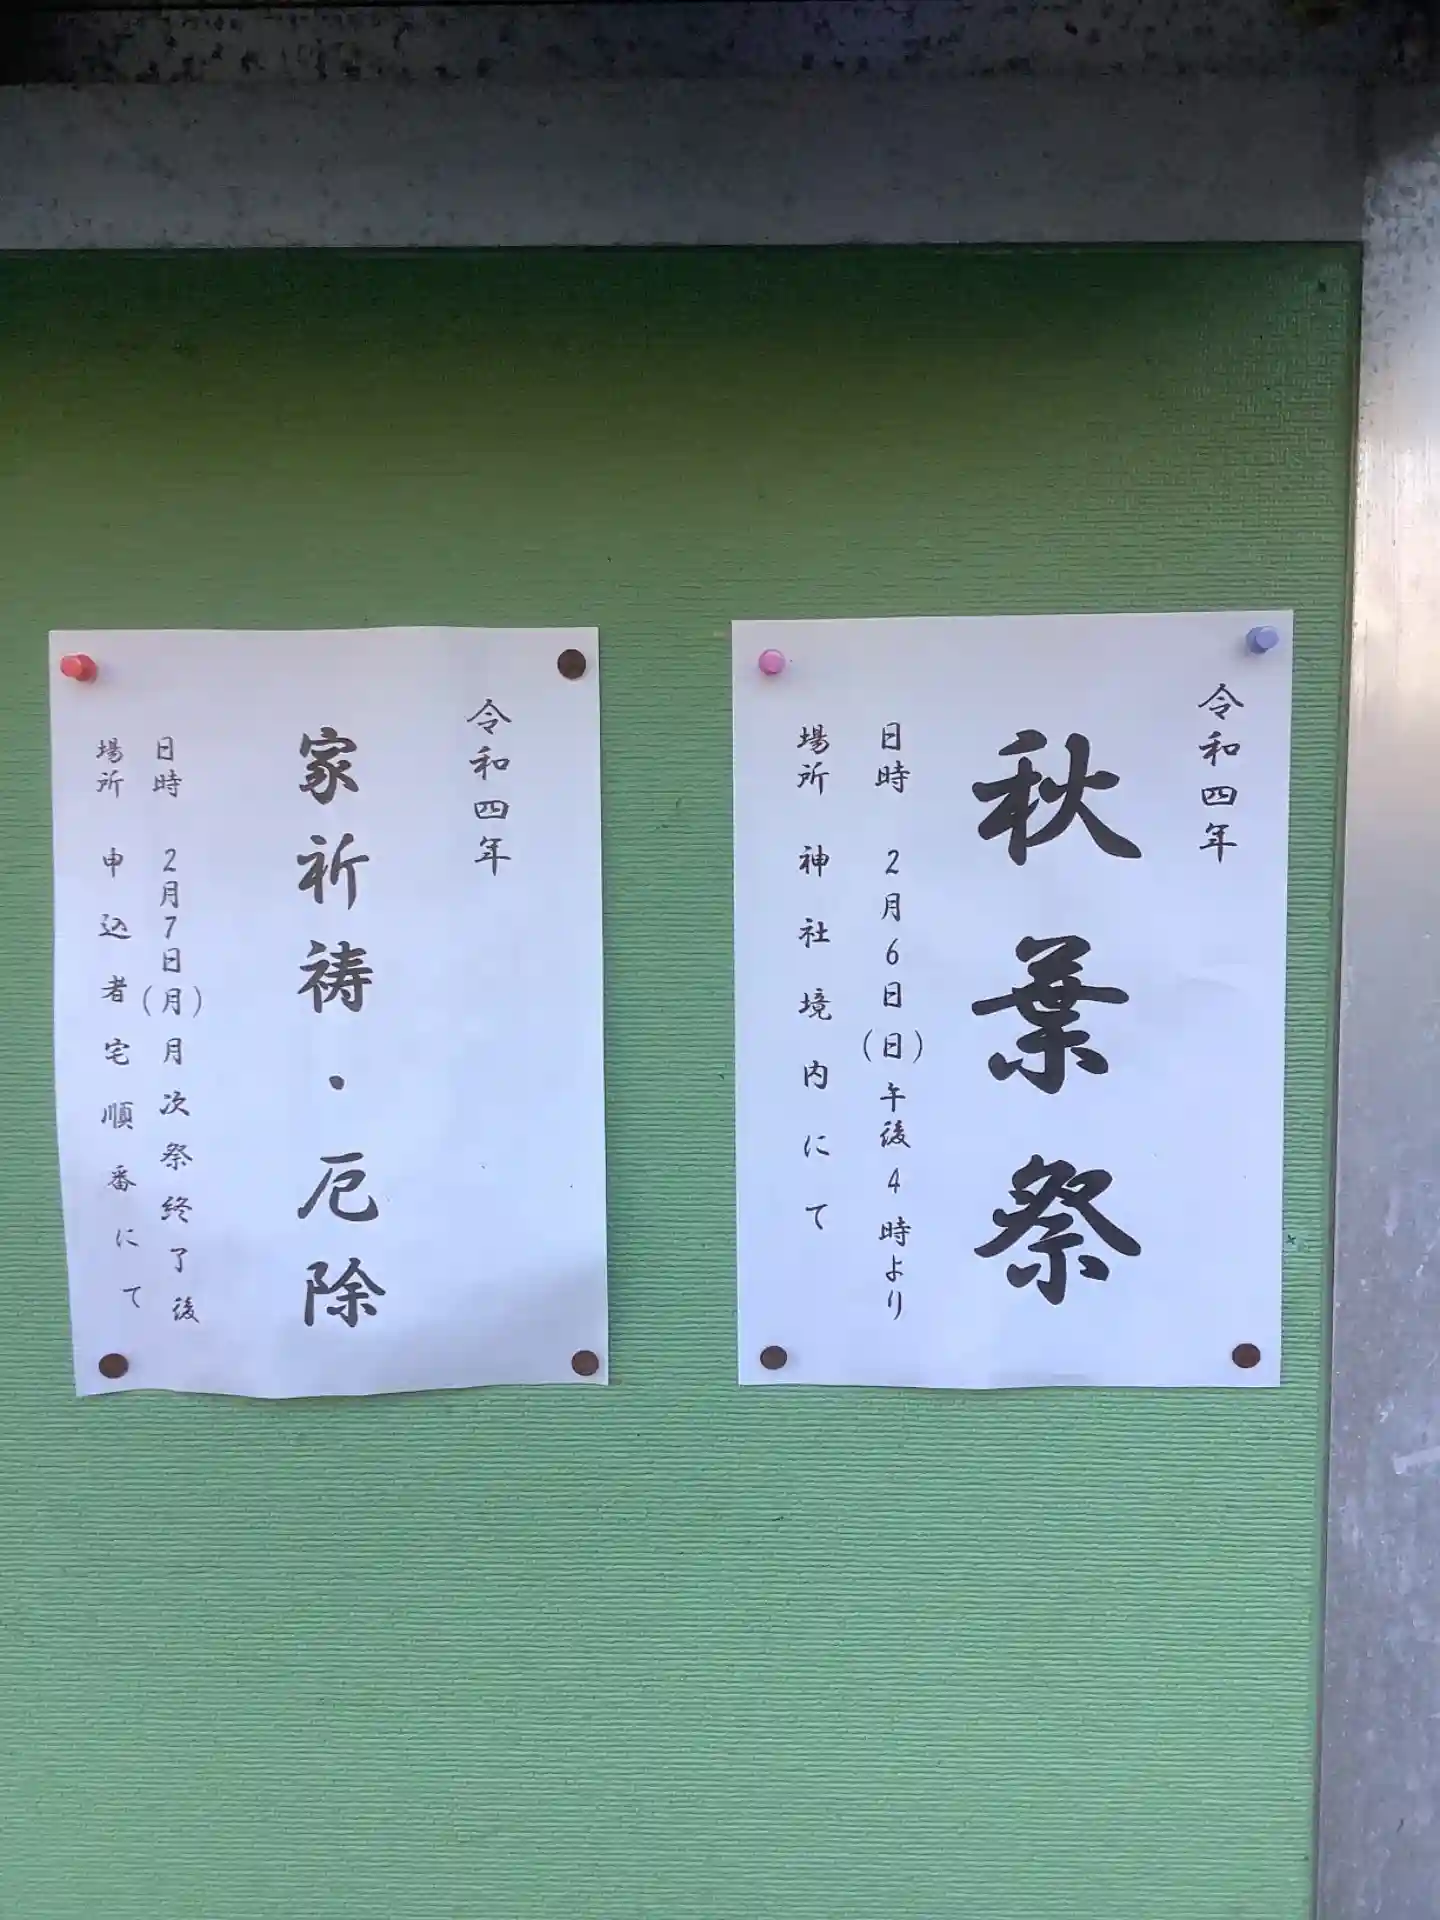 令和四年
秋葉祭
日時 2月6日(日)午後4時より
場所 神社境内にて
令和四年
家祈祷・厄除
日時 2月7日(月)月次祭終了後
場所 申込者宅順番にて